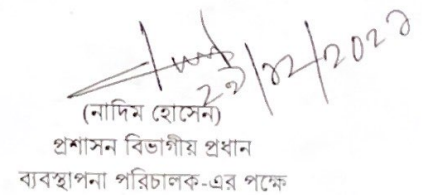 ২১/১২/২০২১
(নাদিম হোসেন)
প্রশাসন বিভাগীয় প্রধান
ব্যবস্থাপনা পরিচালক-এর পক্ষে